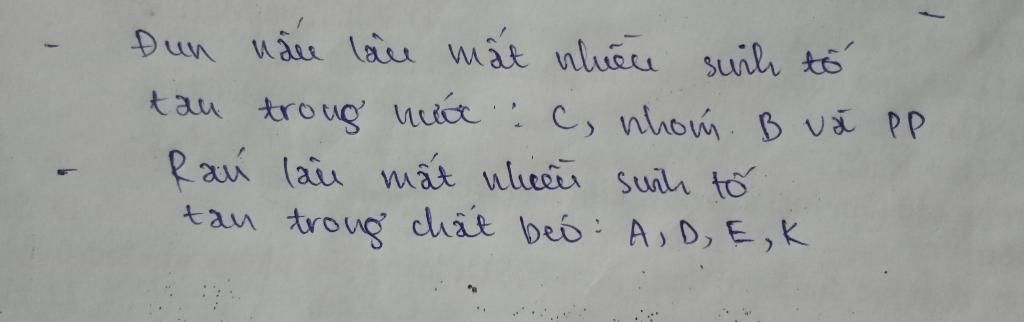 - Đun nấu lâu mất nhiều sinh tố
tan trong nước : C, nhóm B và PP
- Rán lâu mất nhiều sinh tố
tan trong chất béo : A, D, E, K